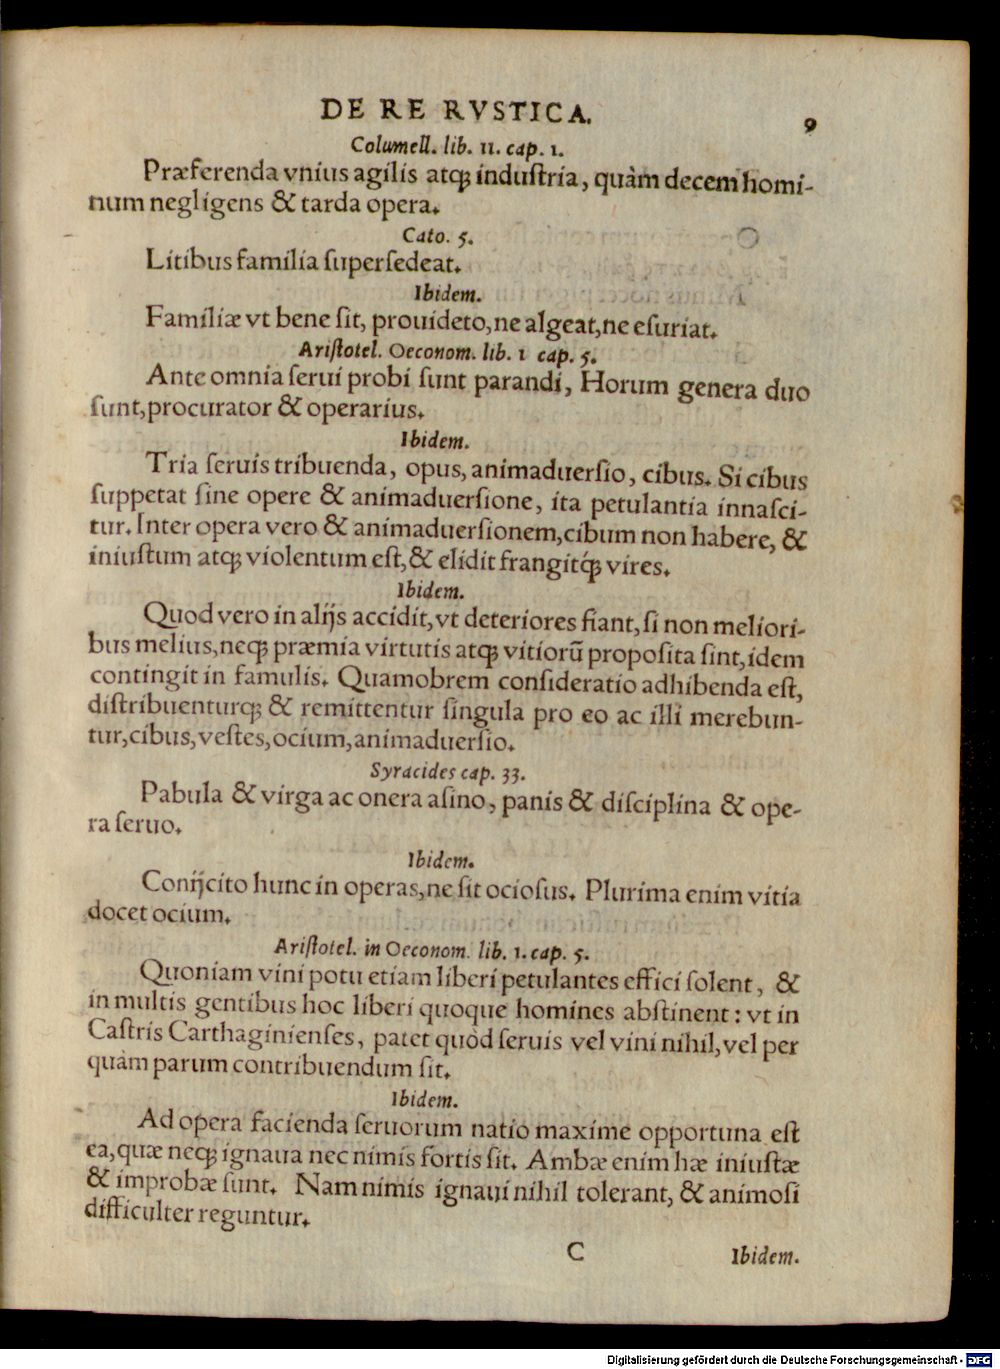 DE RE RVSTICA. 9
Columell. lib. 11. cap. 1.
Præferenda vnius agilis atqꝫ industria, quàm decem homi-
num negligens & tarda opera.
Cato. 5.
Litibus familia supersedeat.
Ibidem.
Familiæ vt bene sit, prouideto, ne algeat, ne esuriat.
Aristotel. Oeconom. lib. 1 cap. 5.
Ante omnia serui probi sunt parandi, Horum genera duo
sunt, procurator & operarius.
Ibidem.
Tria seruis tribuenda, opus, animaduersio, cibus. Si cibus
suppetat sine opere & animaduersione, ita petulantia innasci-
tur. Inter opera vero & animaduersionem, cibum non habere, &
iniustum atqꝫ violentum est, & elidit frangitq́ꝫ vires.
Ibidem.
Quod vero in alijs accidit, vt deteriores fiant, si non meliori-
bus melius, neqꝫ præmia virtutis atqꝫ vitiorū proposita sint, idem
contingit in famulis. Quamobrem consideratio adhibenda est,
distribuenturqꝫ & remittentur singula pro eo ac illi merebun-
tur, cibus, vestes, ocium, animaduersio.
Syracides cap. 33.
Pabula & virga ac onera asino, panis & disciplina & ope-
ra seruo.
Ibidem.
Conijcito hunc in operas, ne sit ociosus. Plurima enim vitia
docet ocium.
Aristotel. in Oeconom. lib. 1. cap. 5.
Quoniam vini potu etiam liberi petulantes effici solent, &
in multis gentibus hoc liberi quoque homines abstinent: vt in
Castris Carthaginienses, patet quòd seruis vel vini nihil, vel per
quàm parum contribuendum sit.
Ibidem.
Ad opera facienda seruorum natio maxime opportuna est
ea, quæ neqꝫ ignaua nec nimis fortis sit. Ambæ enim hæ iniustæ
& improbæ sunt. Nam nimis ignaui nihil tolerant, & animosi
difficulter reguntur.
C Ibidem.
Digitalisierung gefördert durch die Deutsche Forschungsgemeinschaft - DFG